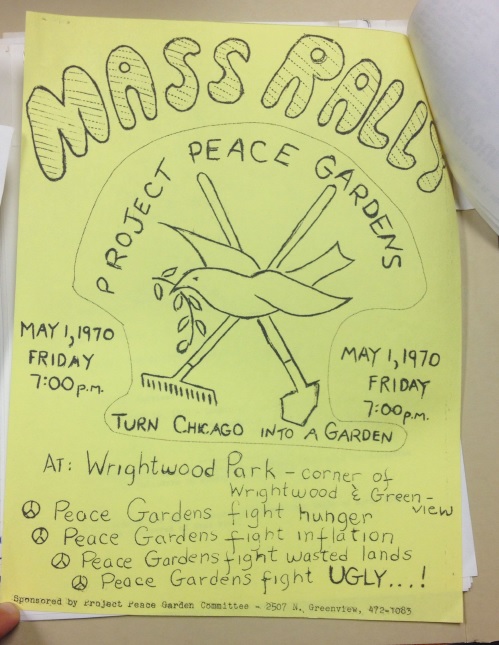 MASS RALLY
PROJECT PEACE GARDENS
MAY 1, 1970
FRIDAY
7:00 p.m.
MAY 1, 1970
FRIDAY
7:00 p.m.
TURN CHICAGO INTO A GARDEN
AT: Wrightwood Park - corner of
Wrightwood & Green-
view
Peace Gardens fight hunger
Peace Gardens fight inflation
Peace Gardens fight wasted lands
Peace Gardens fight UGLY...!
Sponsored by Project Peace Garden Committee - 2507 N. Greenview, 472-1083